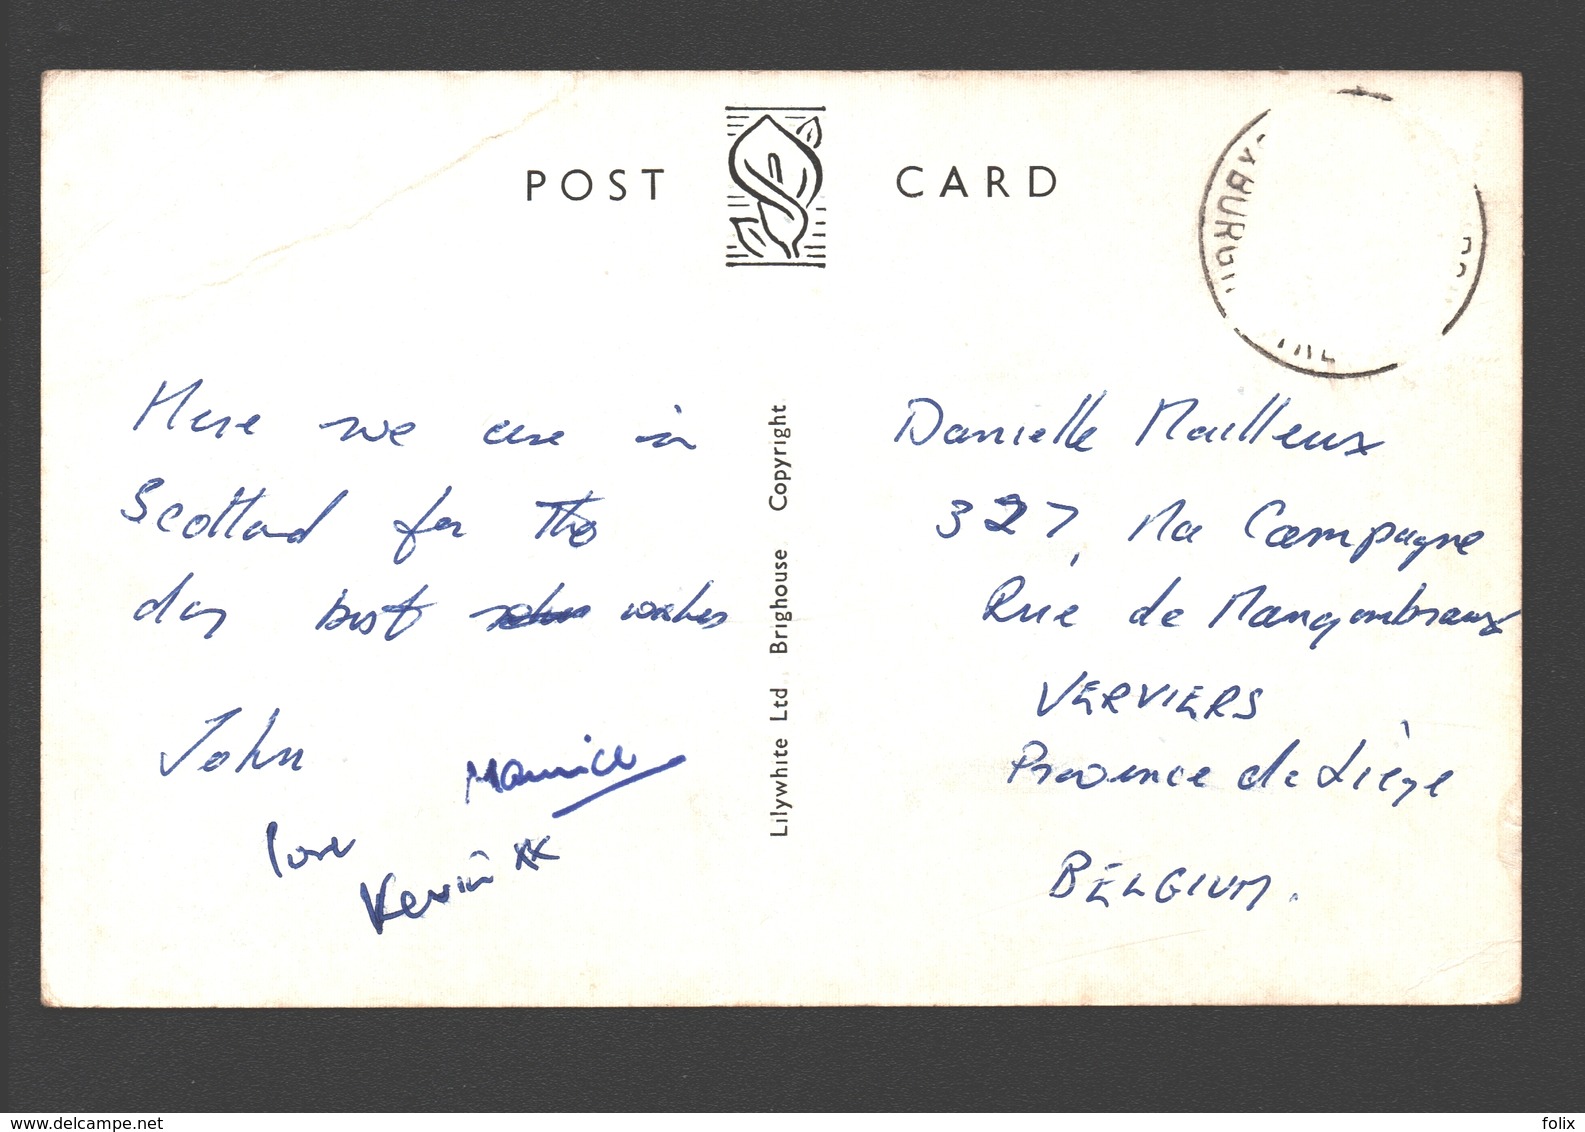 POST CARD
Here we are in
Scotland for the
day best wishes
John
Maurice
love
Kevin xx
Lilywhite Ltd Brighouse Copyright
Danielle Mailleux
327, Ma Campagne
Rue de Mangombroux
VERVIERS
Province de Liège
BELGIUM.
www.delcampe.net
folix